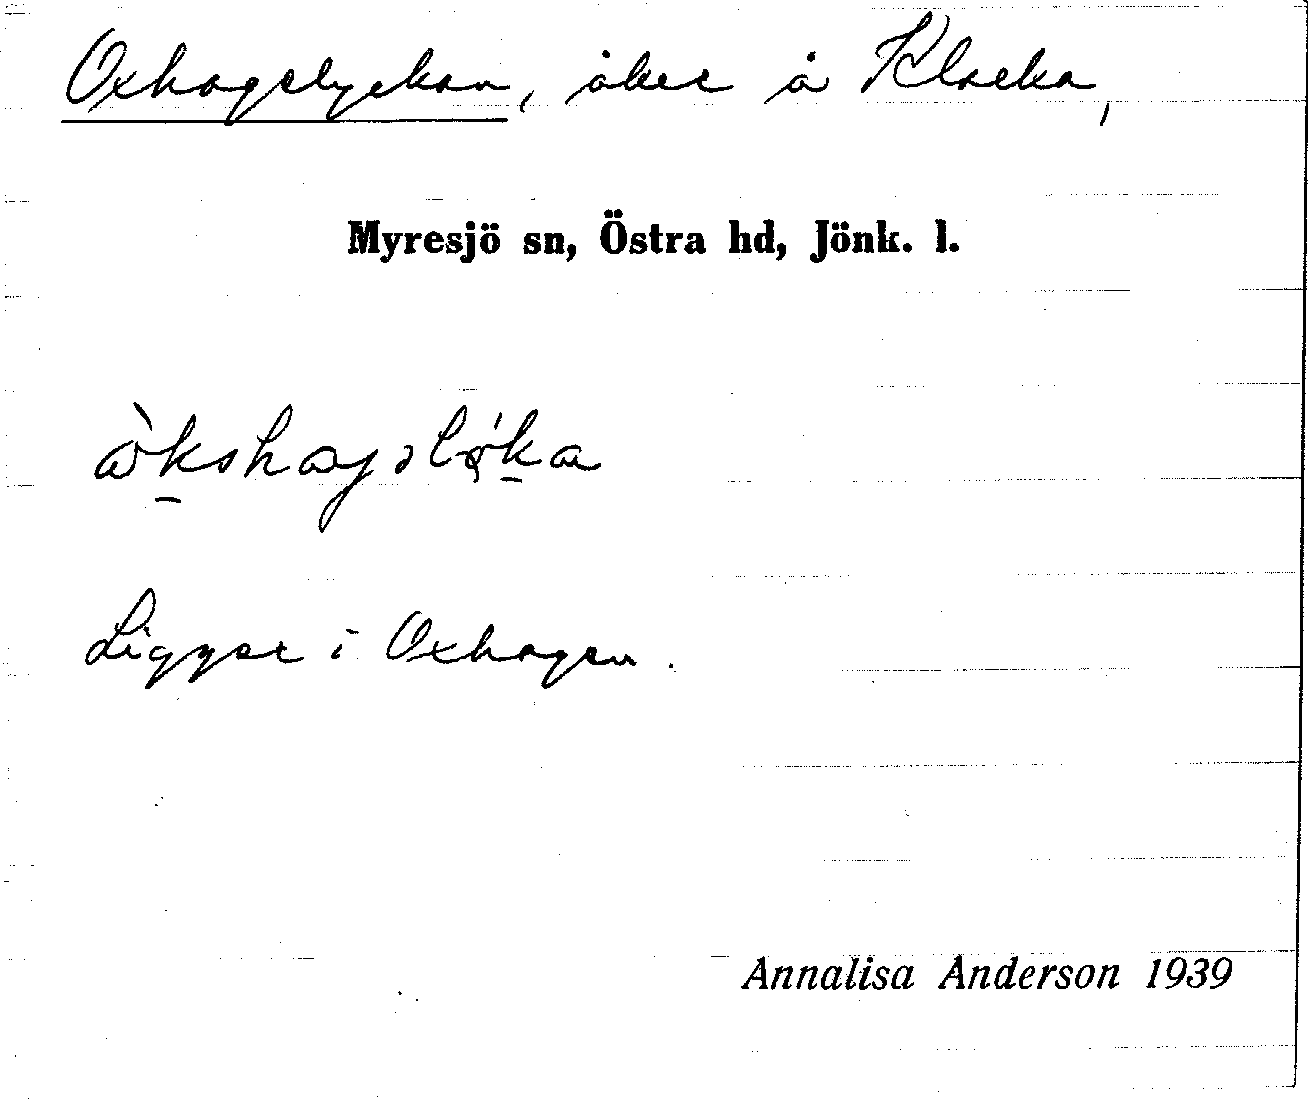 Oxhagslyckan, åker å Klocka,
Myresjö sn, Östra hd, Jönk. l.
Ligger i Oxhagen.
Annalisa Anderson 1939